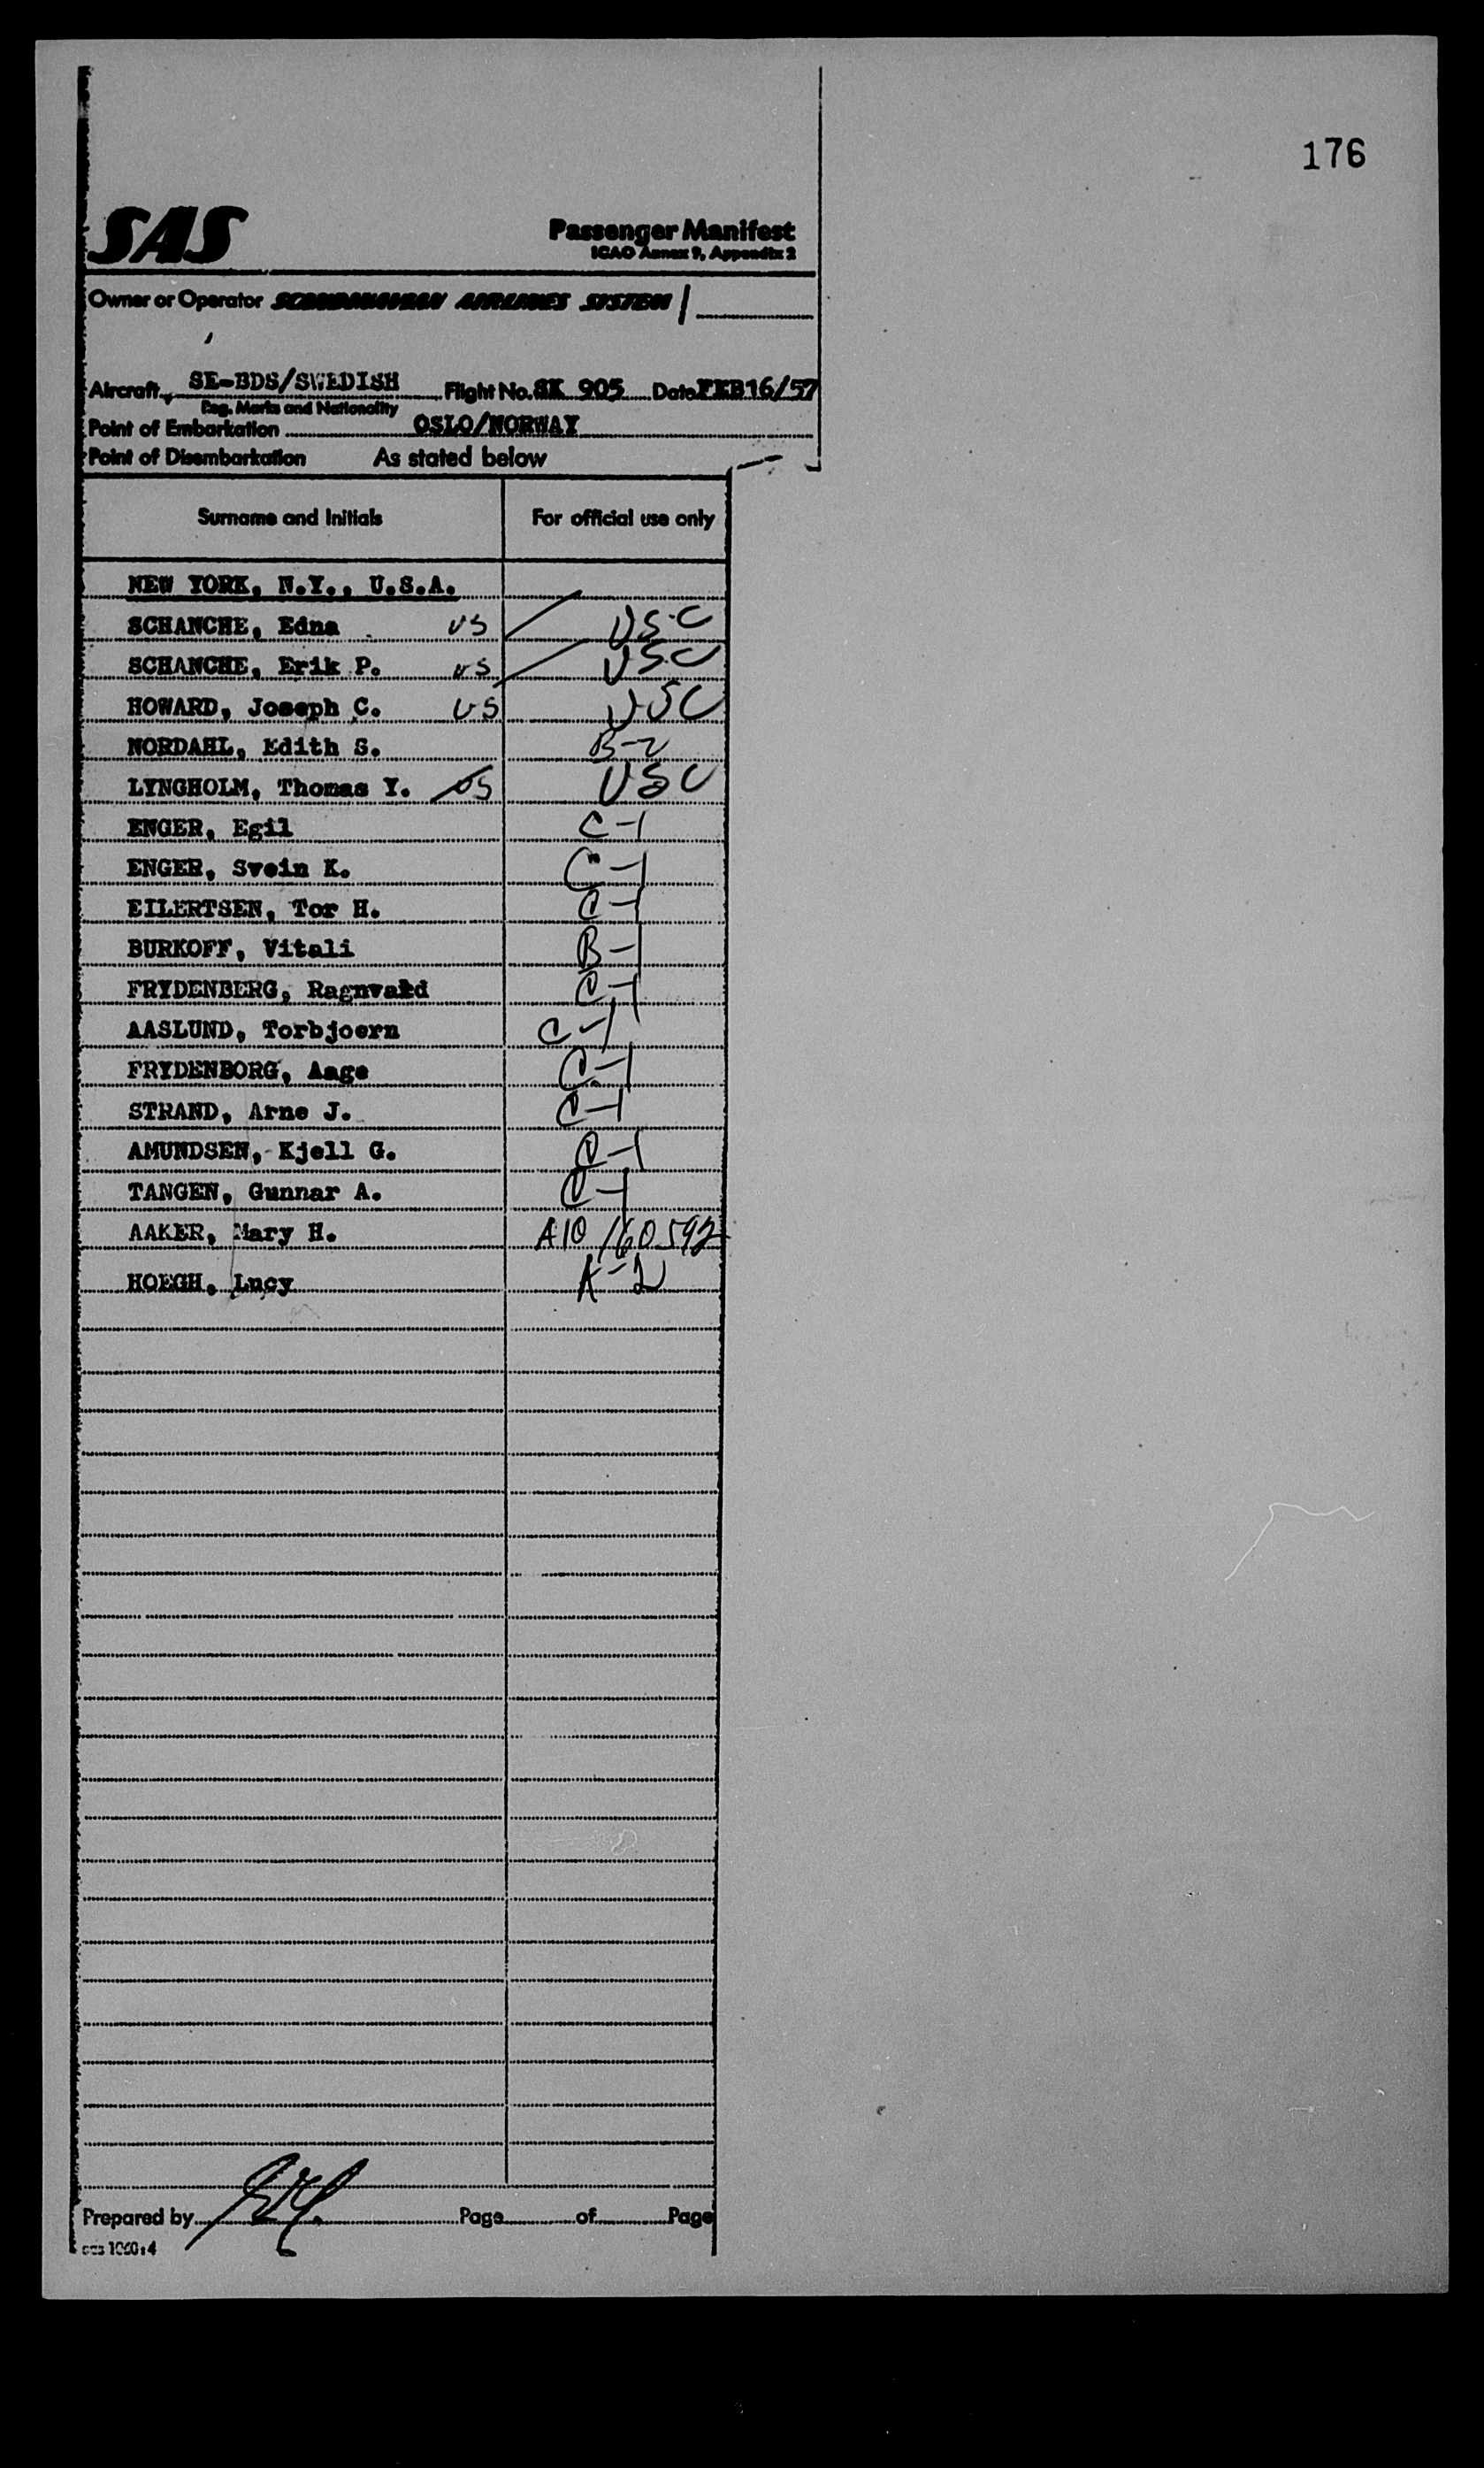 176
SAS
Passenger Manifest
ICAO Annex 9, Appendix 2
Owner or Operator SCANDINAVIAN AIRLINES SYSTEM
Aircraft SE-BDS/SWEDISH Flight No. SK 905 Date FEB16/57
Reg. Marks and Nationality
Point of Embarkation OSLO/NORWAY
Point of Disembarkation As stated below
Surname and Initials For official use only
NEW YORK, N.Y., U.S.A.
SCHANCHE, Edna US USC
SCHANCHE, Erik P. US USC
HOWARD, Joseph C. US USC
NORDAHL, Edith S. B-2
LYNGHOLM, Thomas Y. US USC
ENGER, Egil C-1
ENGER, Svein K. C-1
EILERTSEN, Tor H. C-1
BURKOFF, Vitali B-1
FRYDENBERG, Ragnvald C-1
AASLUND, Torbjoern C-1
FRYDENBORG, Aage C-1
STRAND, Arne J. C-1
AMUNDSEN, Kjell G. C-1
TANGEN, Gunnar A. C-1
AAKER, Mary H. A10 160592
HOEGH, Lucy K-2
Prepared by Page of Page